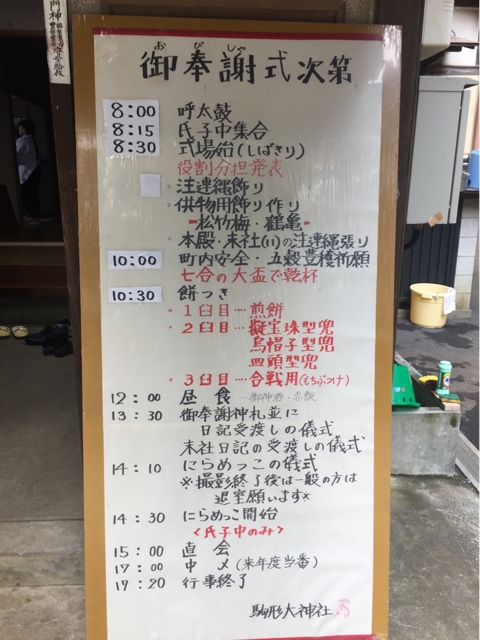 おびしゃ
御奉謝式次第
8:00 呼太鼓
8:15 氏子中集合
8:30 式場始(しばきり)
役割分担発表
・注連縄飾り
・供物用飾り作り
-松竹梅・鶴亀-
・本殿・末社(11)の注連縄張り
10:00 町内安全・五穀豊穣祈願
七合の大盃で乾杯
10:30 餅つき
・1臼目‥‥煎餅
・2臼目‥‥擬宝珠型兜
烏帽子型兜
皿頭型兜
・3臼目‥‥合戦用(もちぶつけ)
12:00 昼食―御神酒・赤飯
13:30 御奉謝神札並に
日記受渡しの儀式
末社日記の受渡しの儀式
14:10 にらめっこの儀式
※撮影終了後は一般の方は
退室願います※
14:30 にらめっこ開始
<氏子中のみ>
15:00 直会
17:00 中〆(来年度当番)
17:20 行事終了
駒形大神社
門神